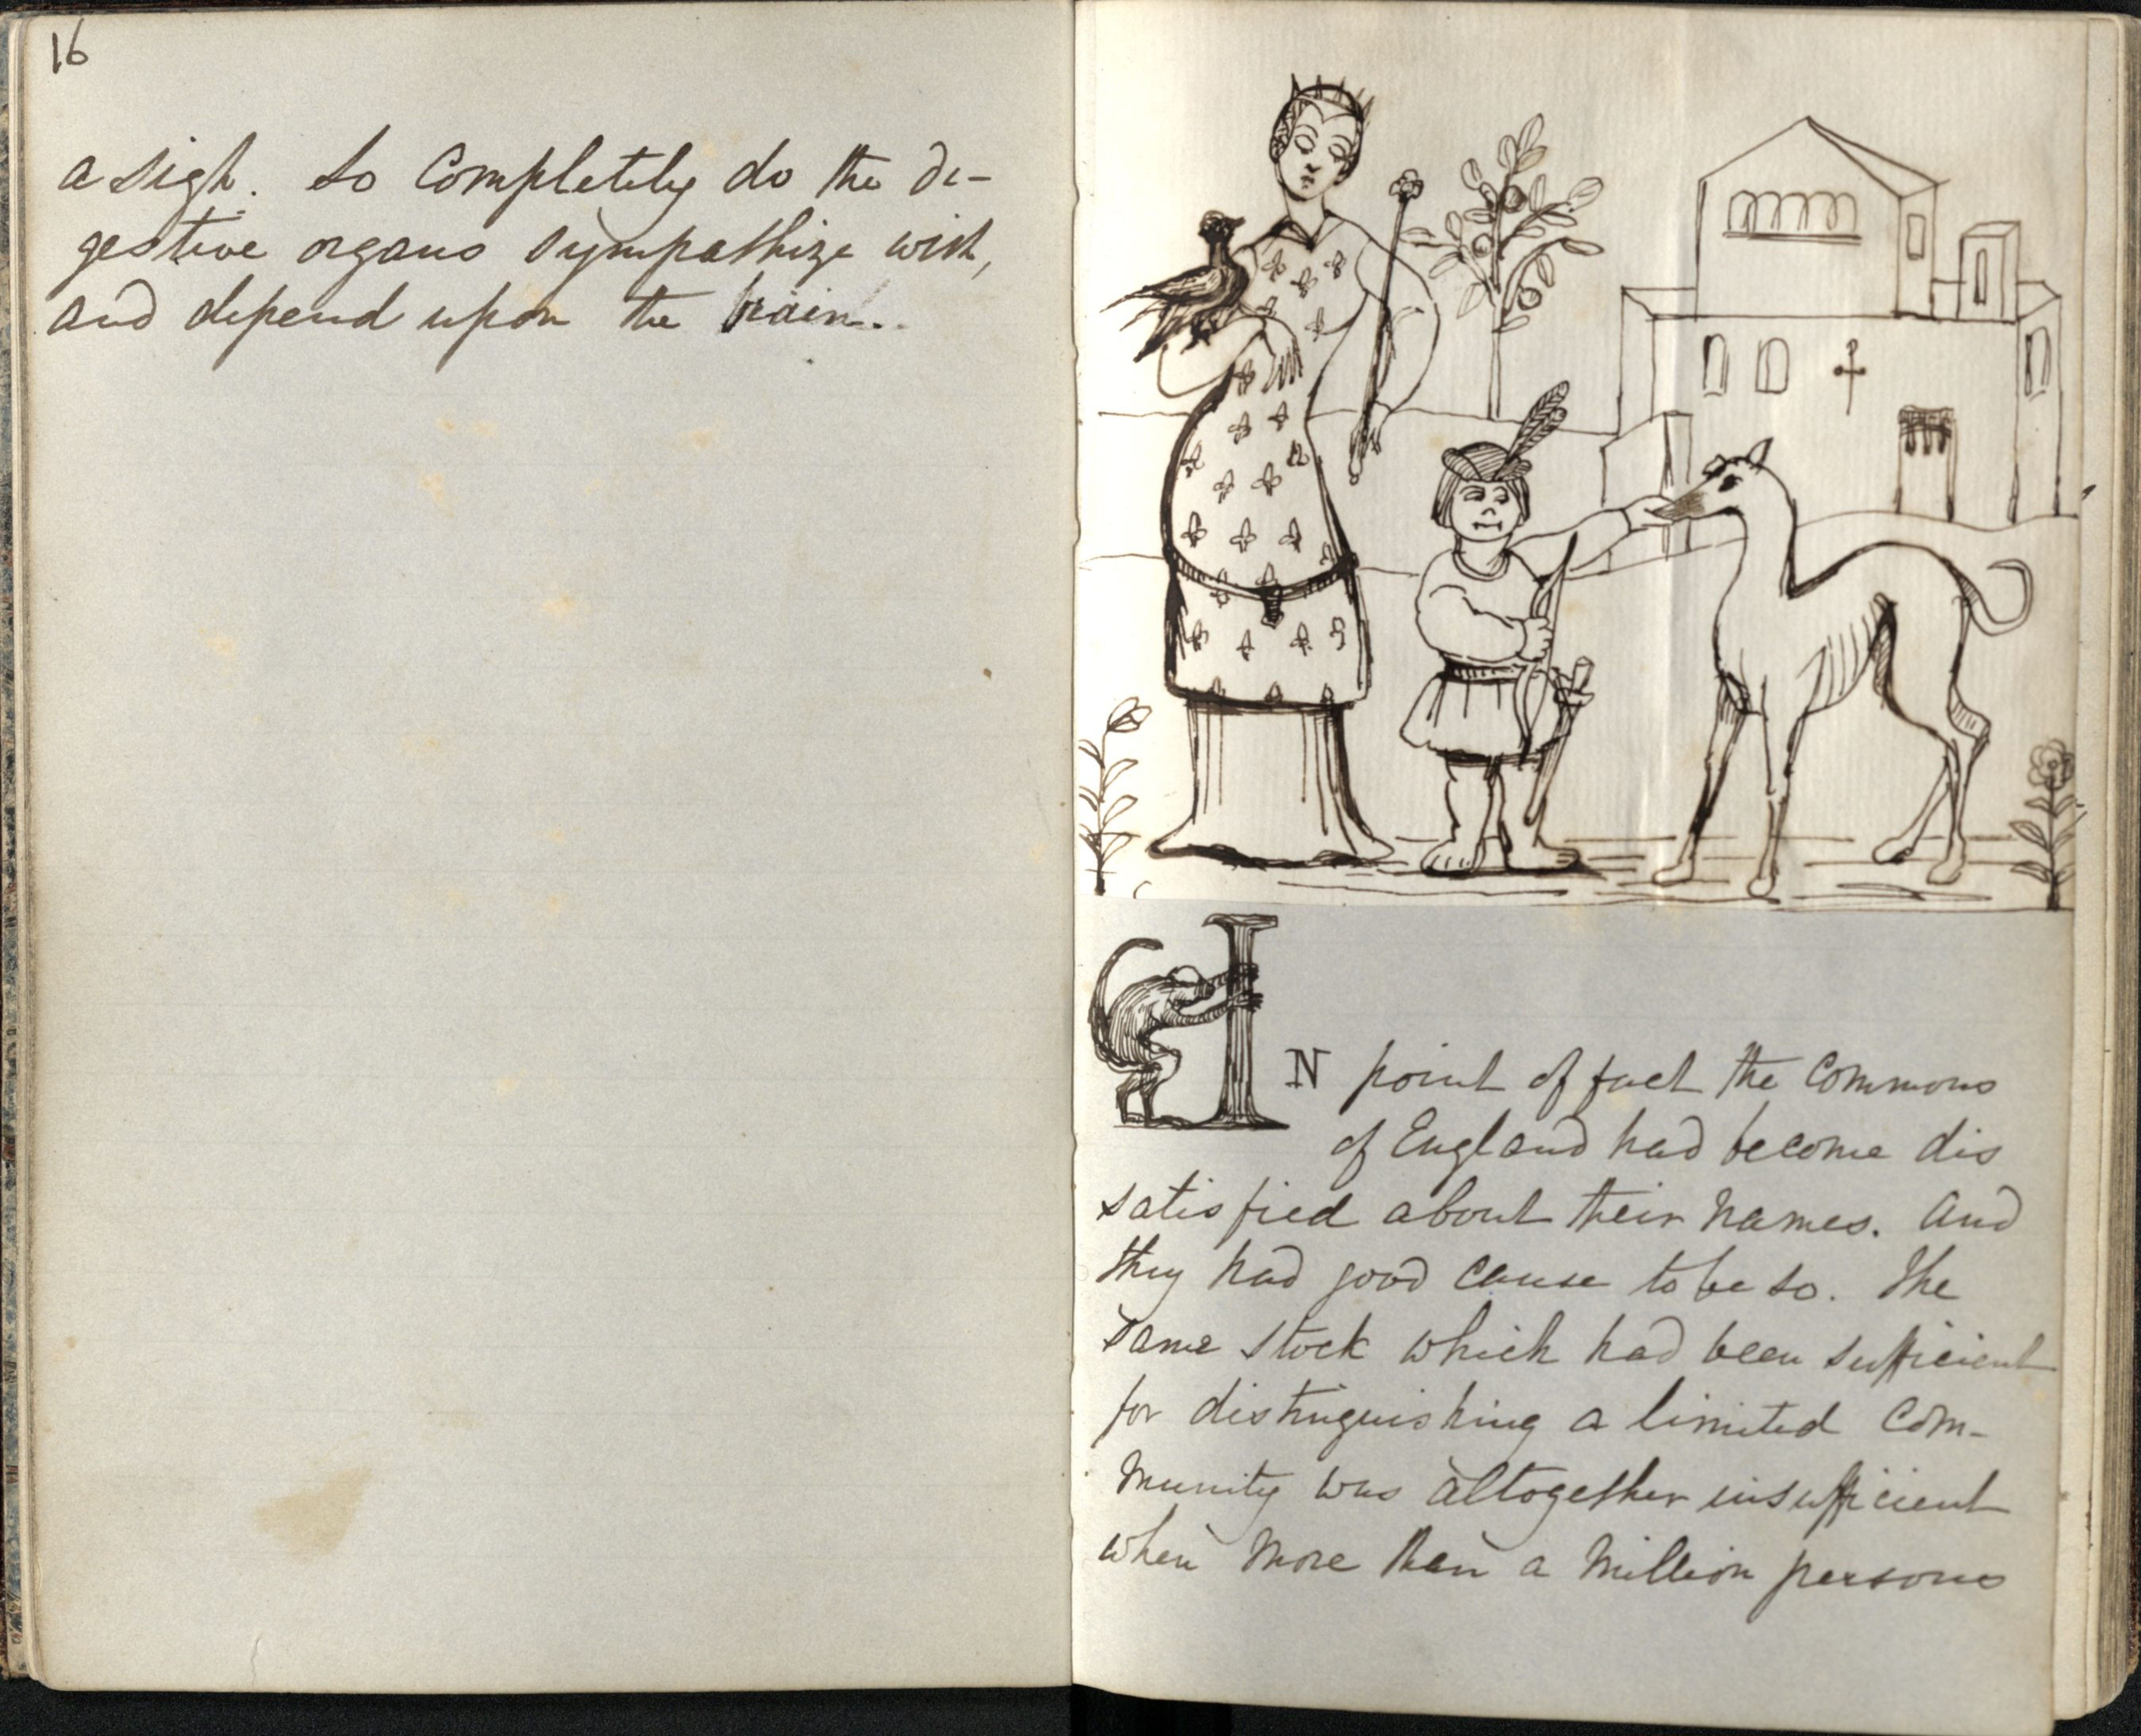 16
a sigh. So completely do the di-
gestive organs sympathize with,
and depend upon the brain.
IN point of fact the Commons
of England had become dis
satisfied about their names. And
they had good cause to be so. The
same stock which had been sufficient
for distinguishing a limited Com-
munity was altogether insufficient
when more than a million persons